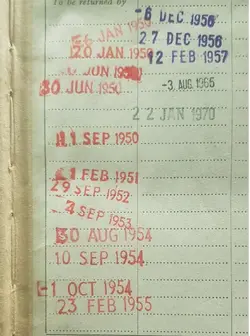 To be returned by
JAN 195
20 JAN 195
JUN
30 JUN 1950
1 SEP 1950
1 FEB 1951
29 SEP 1952
SEP 1953
30 AUG 1954
10 SEP 1954
-1 OCT 1954
23 FEB 1955
-6 DEC 1956
27 DEC 1956
12 FEB 1957
-3. AUG 1965
22 JAN 1970